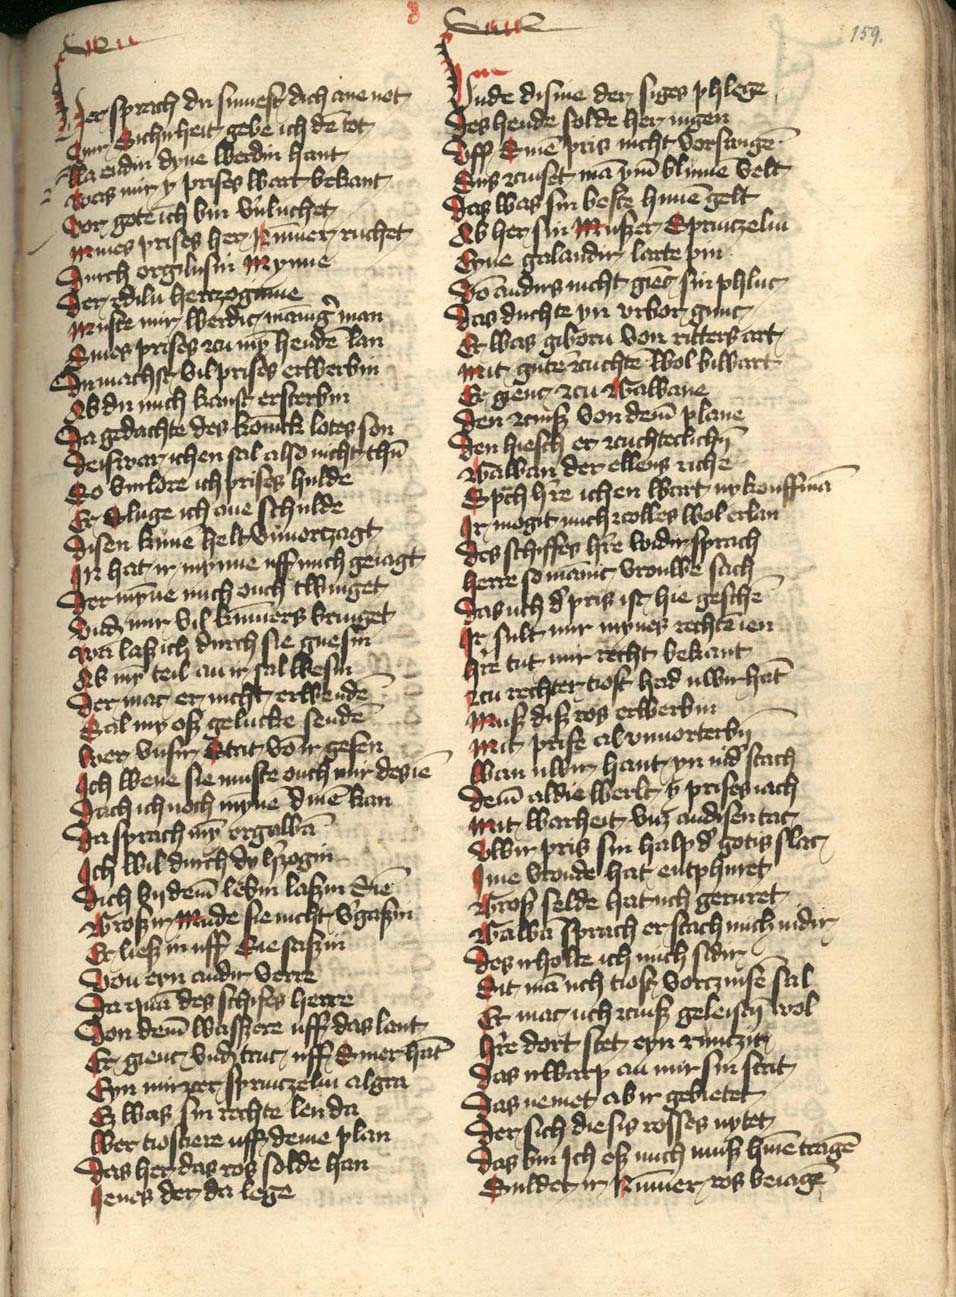 159.
Her sprach du sinnest dich ane not
Mir Sichirheit gebe ich dē tot
Va endir dyne werdin hant
was mir y prises wart bekant
vor gote ich bin v̓uluchet
mines prises her nūmer ruchet
Durch orgilusin mynne
Der edilū herczoginne
muste mir werdic mānig̓ man
Sines prises czu mȳ hendē lan
Du machst vil prises erwerbin
Ab du mich kanst ersterbin
Da gedachte des konick lotes son
deiswar ichen sal also nicht thū
So vūlore ich prises hulde
Er Sluge ich ane schulde
disen kune helt vn̄uorczagt
In hat ir mynne uff mich geiagt
Der mȳne mich ouch twinget
vnd̓ mir vil kūmers bringet
wā lasz ich durch sie gnesin
Ab mȳ teil an ir sal wesin
Der mac er nicht erwendē
Sal my osz gelucke sendē
wer vnsir Strit vō ir gesen
Ich wene sie muste ouch mir des iē
Dach ich noch mȳnē dinē kan
Da sprach mȳ her gawā
Ich wil durch dy h̓zogin
Dich by demē lebin laszin Sin
Groszir mude sie nicht v̓gaszin
Er liesz in uff Sie saszin
Von eyn andir verre
Da quā des schifes herre
Von demē waszere uff das lant
Er gienc vnd̓ truc uff Siner hāt
Eyn mirzer sprinczelin algra
Ez was sin rechte len da
wer tiostiere uff deme plan
Das her das ros solde han
Jenes der da lege
Unde disme der siges phlege
Des hende solde her nigen
Uff Sinē pris nicht vorswigē
Sus czinset mā ȳm blumē velt
Das was sin beste hubē gelt
Ab her sin Muszer Sprinczelin
Eyne galandir larte pin
vō anders nicht gienc sin phluc
Das duchte yn vrbor gnuc
Er was giborn von ritters art
Mit guter czuchte wol biwart
Er gienc czu Gawane
Den czinsz von demē plane
Den hiesch er czuchteclichē
Gawan der ellens riche
Sprach h̓re ichen wart ny kouffmā
Ir mogit mich czolles wol erlan
Des schiffes h̓re widir sprach
herre so mānic vrouwe sach
Das uch d̓ pris ist hie geschē
Ir sult mir mynes rechtē ien
h̓re tut mir recht bekant
Czu rechter tiost had uwir hāt
Musz disz ros erwerbin
Mit prise al vnuorterbī
wan uwir hant yn nid̓ stach
Demē al die werlt ȳ prises iach
Mit warheit vncz an disen tac
Uwir pris sin halp d̓ gotis slac
Ime vroude hat entphuret
Grosz selde hat uch geruret
Gawā sprach er stach mich nidir
des irholte ich mich sidir
Sit mā uch tiost vorczinsē sal
Er mac uch czinsz geleistē wol
h̓re dort stet eyn runczit
Das irwarp an mir sin strit
Das nemet ab ir gebietet
Der sich diesis rosses nytet
Das bin Ich esz mich musz hinē tragē
Suldet ir nūmer ros beiagē